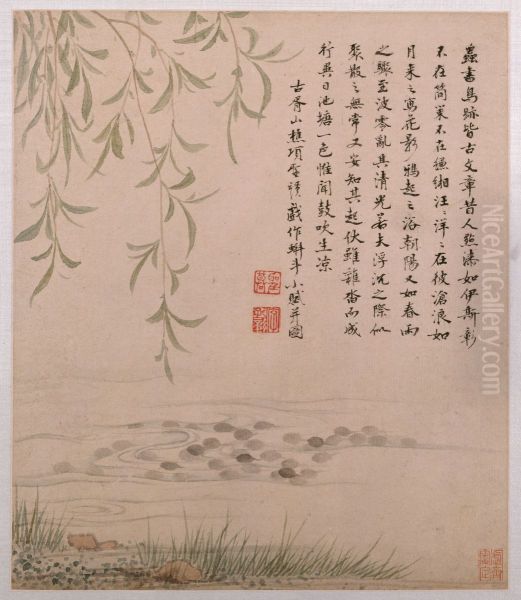 蟲書鳥跡皆古文章昔人點漆如伊斯彰
不在簡策不在縑緗汪〻洋〻在彼滄浪如
月來之寫花影鴉起之浴朝陽又如春雨
之驟至波零亂其清光若夫浮沉之際似
聚散之無常又安知其起伏雖雜沓而成
行異日池塘一色惟聞鼓吹生涼
古胥山樵項聖謨戲作蝌斗小賦并圖
NiceArtGallery.com